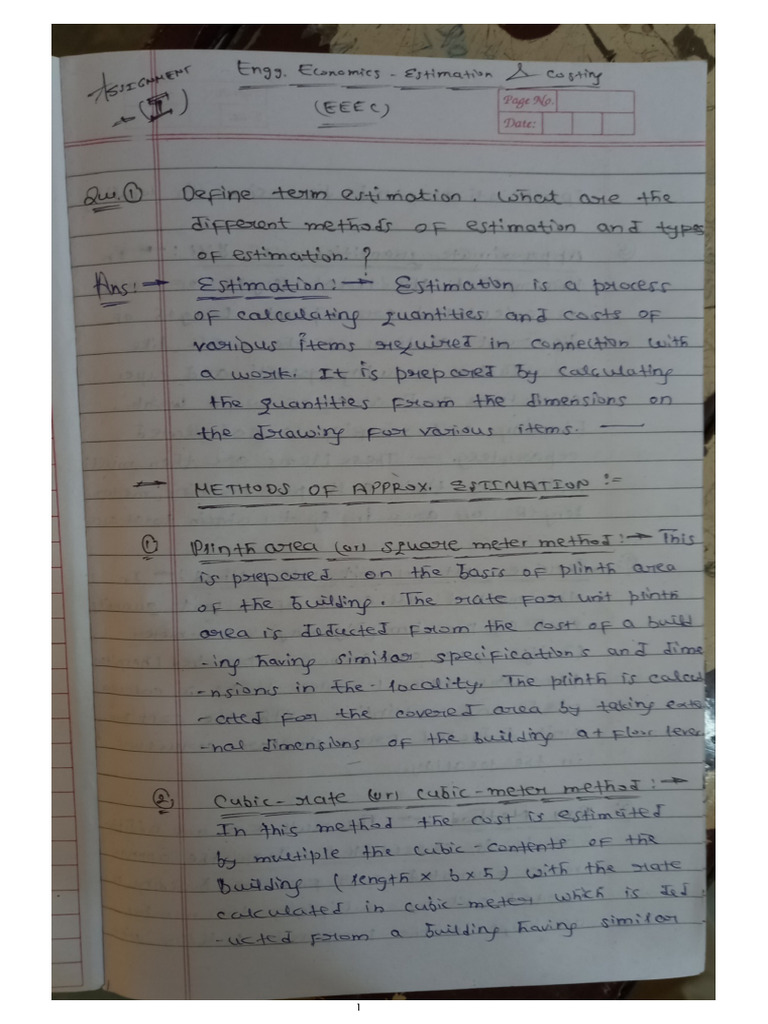 ASSIGNMENT
(I)
Engg. Economics - Estimation & Costing
(EEEC)
Page No.
Date:
Qu. ① Define term estimation. What are the
different methods of estimation and types
of estimation. ?
Ans:→ Estimation:→ Estimation is a process
of calculating quantities and costs of
various items required in connection with
a work. It is prepared by calculating
the quantities from the dimensions on
the drawing for various items. —
→ METHODS OF APPROX. ESTIMATION :-
① Plinth area (or) square meter method:→ This
is prepared on the basis of plinth area
of the building. The rate for unit plinth
area is deducted from the cost of a build
-ing having similar specifications and dime
-nsions in the locality. The plinth is calcul
-ated for the covered area by taking exte
-nal dimensions of the building at floor level
② Cubic-rate (or) cubic-meter method:→
In this method the cost is estimated
by multiple the cubic-contents of the
building (length x b x h) with the rate
calculated in cubic-meter which is ded
-ucted from a building having similar
1